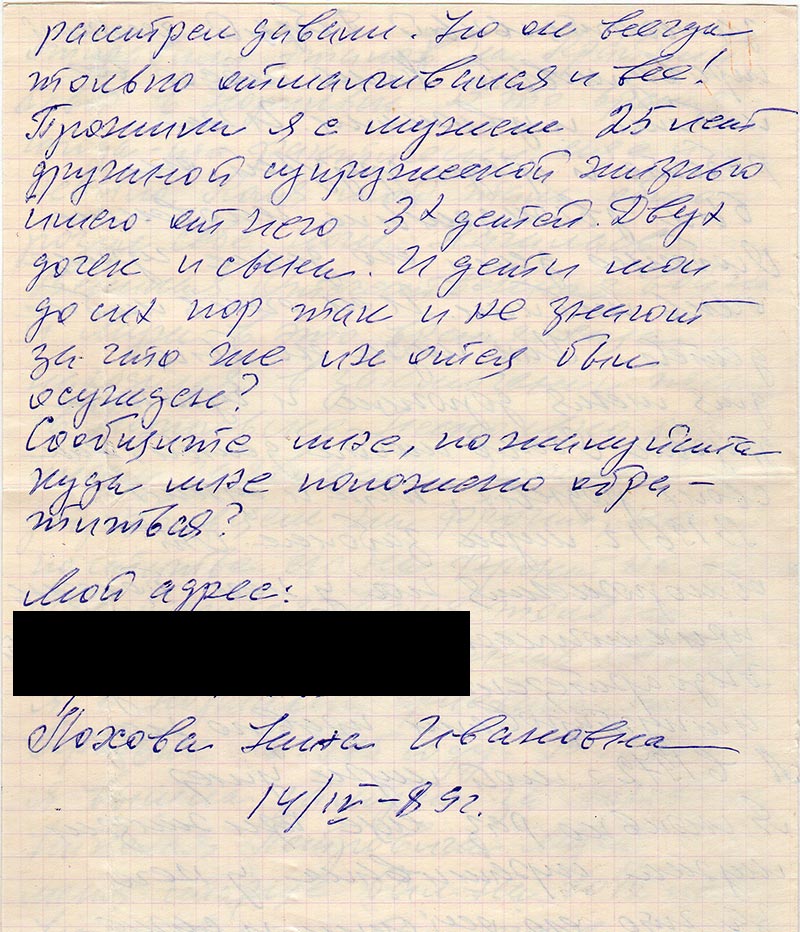 расстрел давали. Но он всегда
только отмалчивался и все!
Прожили я с мужем 25 лет
дружной супружеской жизнью
имею от него 3х детей. Двух
дочек и сына. И дети мои
до сих пор так и не знают
за что же их отец был
осужден?
Сообщите мне, пожалуйста
куда мне положено обра-
титься?
Мой адрес:
Нина Ивановна
14/IV-89г.